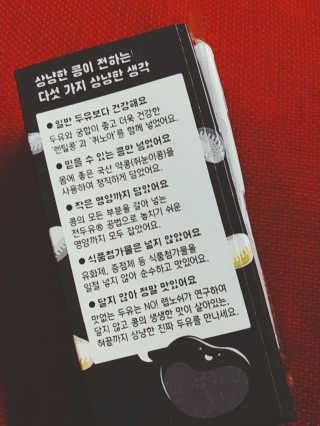 상냥한 콩이 전하는
다섯 가지 상냥한 생각
● 일반 두유보다 건강해요
두유와 궁합이 좋고 더욱 건강한
'렌틸콩'과 '퀴노아'를 함께 넣었어요.
● 믿을 수 있는 콩만 넣었어요
몸에 좋은 국산 약콩(쥐눈이콩)을
사용하여 정직하게 담았어요.
● 작은 영양까지 담았어요
콩의 모든 부분을 갈아 넣는
전두유® 공법으로 놓치기 쉬운
영양까지 모두 잡았어요.
● 식품첨가물은 넣지 않았어요
유화제, 증점제 등 식품첨가물을
일절 넣지 않아 순수하고 맛있어요.
● 달지 않아 정말 맛있어요
맛없는 두유는 NO! 랩노쉬가 연구하여
달지 않고 콩의 생생한 맛이 살아있는,
혀끝까지 상냥한 진짜 두유를 만나세요.